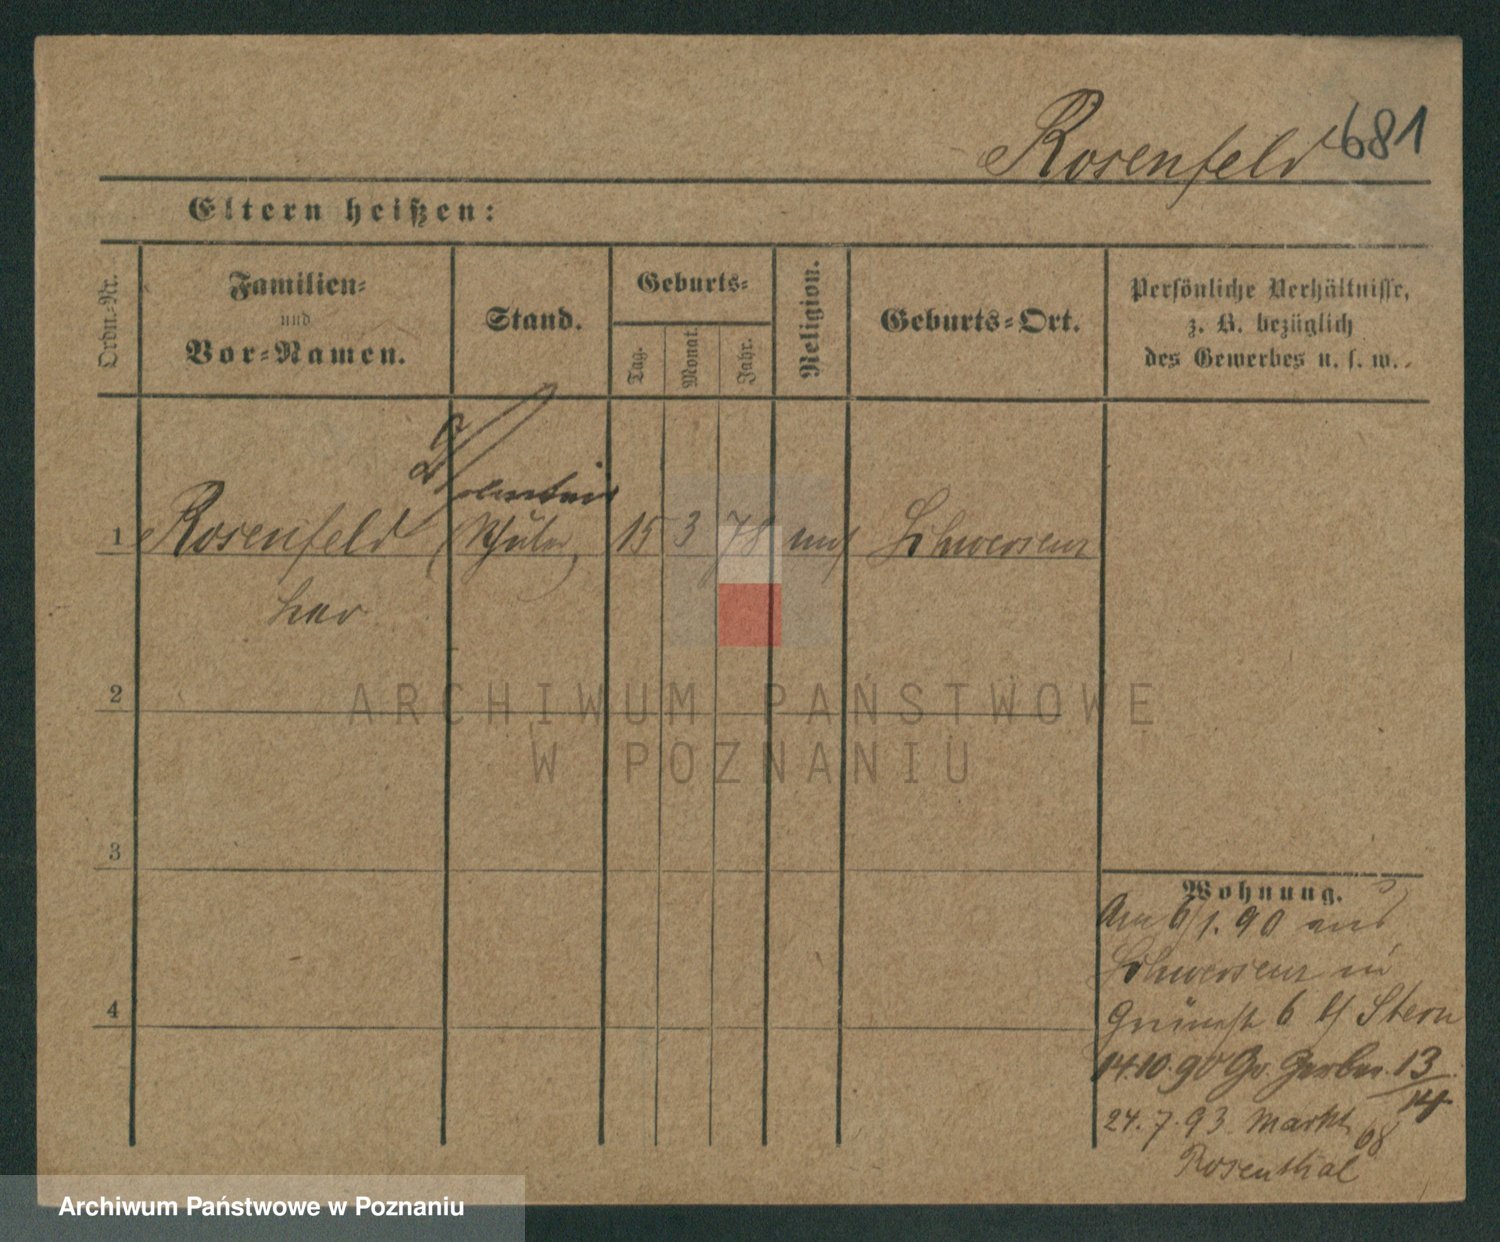 Rosenfeld 681
Eltern heißen:
Ordn.-Nr.
Familien-
und
Vor-Namen.
Stand.
Geburts-
Tag.
Monat.
Jahr.
Religion.
Geburts-Ort.
Persönliche Verhältnisse,
z. B. bezüglich
des Gewerbes u. s. w.
1 Rosenfeld Schüler 15 3 78 mos Schwersenz
2
3
4
Wohnung.
Am 6/1. 90 aus
Schwersenz in
Grünestr 6 b/ Stern
14.10.90 Gr. Gerber. 13
14
24.7.93. Markt 68
Rosenthal
ARCHIWUM PAŃSTWOWE
W POZNANIU
Archiwum Państwowe w Poznaniu